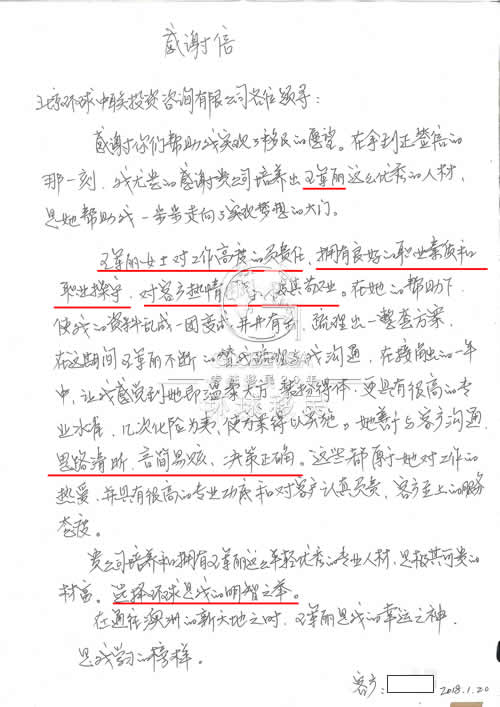 感谢信
北京环球中联投资咨询有限公司各位领导:
感谢你们帮助我实现了移民的愿望。在拿到正签信的
那一刻,我尤若的感谢贵公司培养出王苹丽这么优秀的人材,
是她帮助我一步步走向了实现梦想的大门。
王苹丽女士对工作高度的负责任,拥有良好的职业素质和
职业操守,对客户热情 极其敬业。在她的帮助下
使我的资料乱成一团变成井井有 ,梳理出一整套方案,
在这期间王苹丽不断的 与我沟通,在接触的一年
中,让我感觉到她即温柔大方 装扮得体,更具有很高的专
业水准,几次化险为夷,使方案得以实施。她善于与客户沟通,
思路清晰,言简易 ,决策正确。这些都源于她对工作的
热爱,并具有很高的专业功底和对客户认真负责,客户至上的服务
态度。
贵公司培养和拥有王苹丽这么年轻优秀的专业人材,是极其可贵的
材富。选择环球是我的明智之举。
在通往澳洲的新天地之时,王苹丽是我的幸运之神,
是我学习的榜样。
客户: 2018.1.20